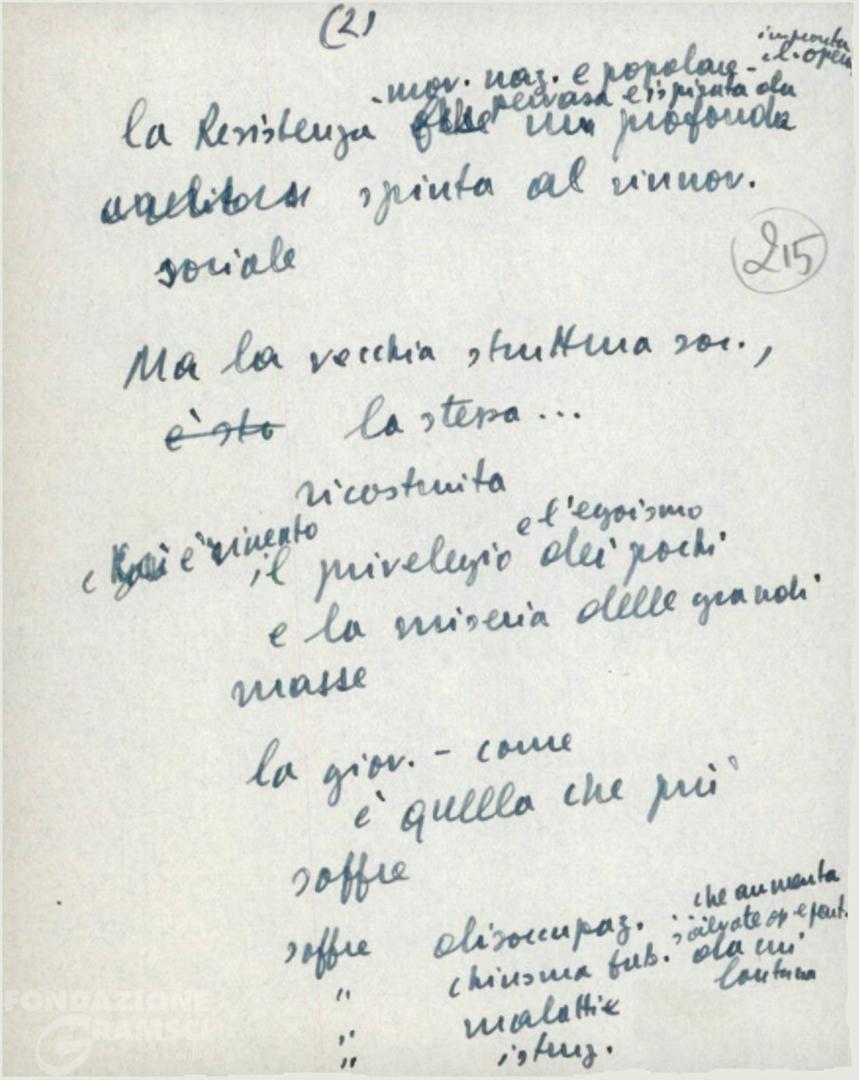 (2)
impronta
- mov. naz. e popolare -
pervasa e ispirata da
la Resistenza ebbe una profonda
spinta al rinnov.
sociale
215
Ma la vecchia struttura soc.,
è sta la stessa...
ricostruita
e così è rinvento e l'egoismo
il privelegio dei pochi
e la miseria delle grandi
masse
la giov. - come
è quella che più
soffre
che aumenta
soffre disoccupaz.
" chiusura fab. da cui
lontana
" malattie
" istruz.
FONDAZIONE
GRAMSCI